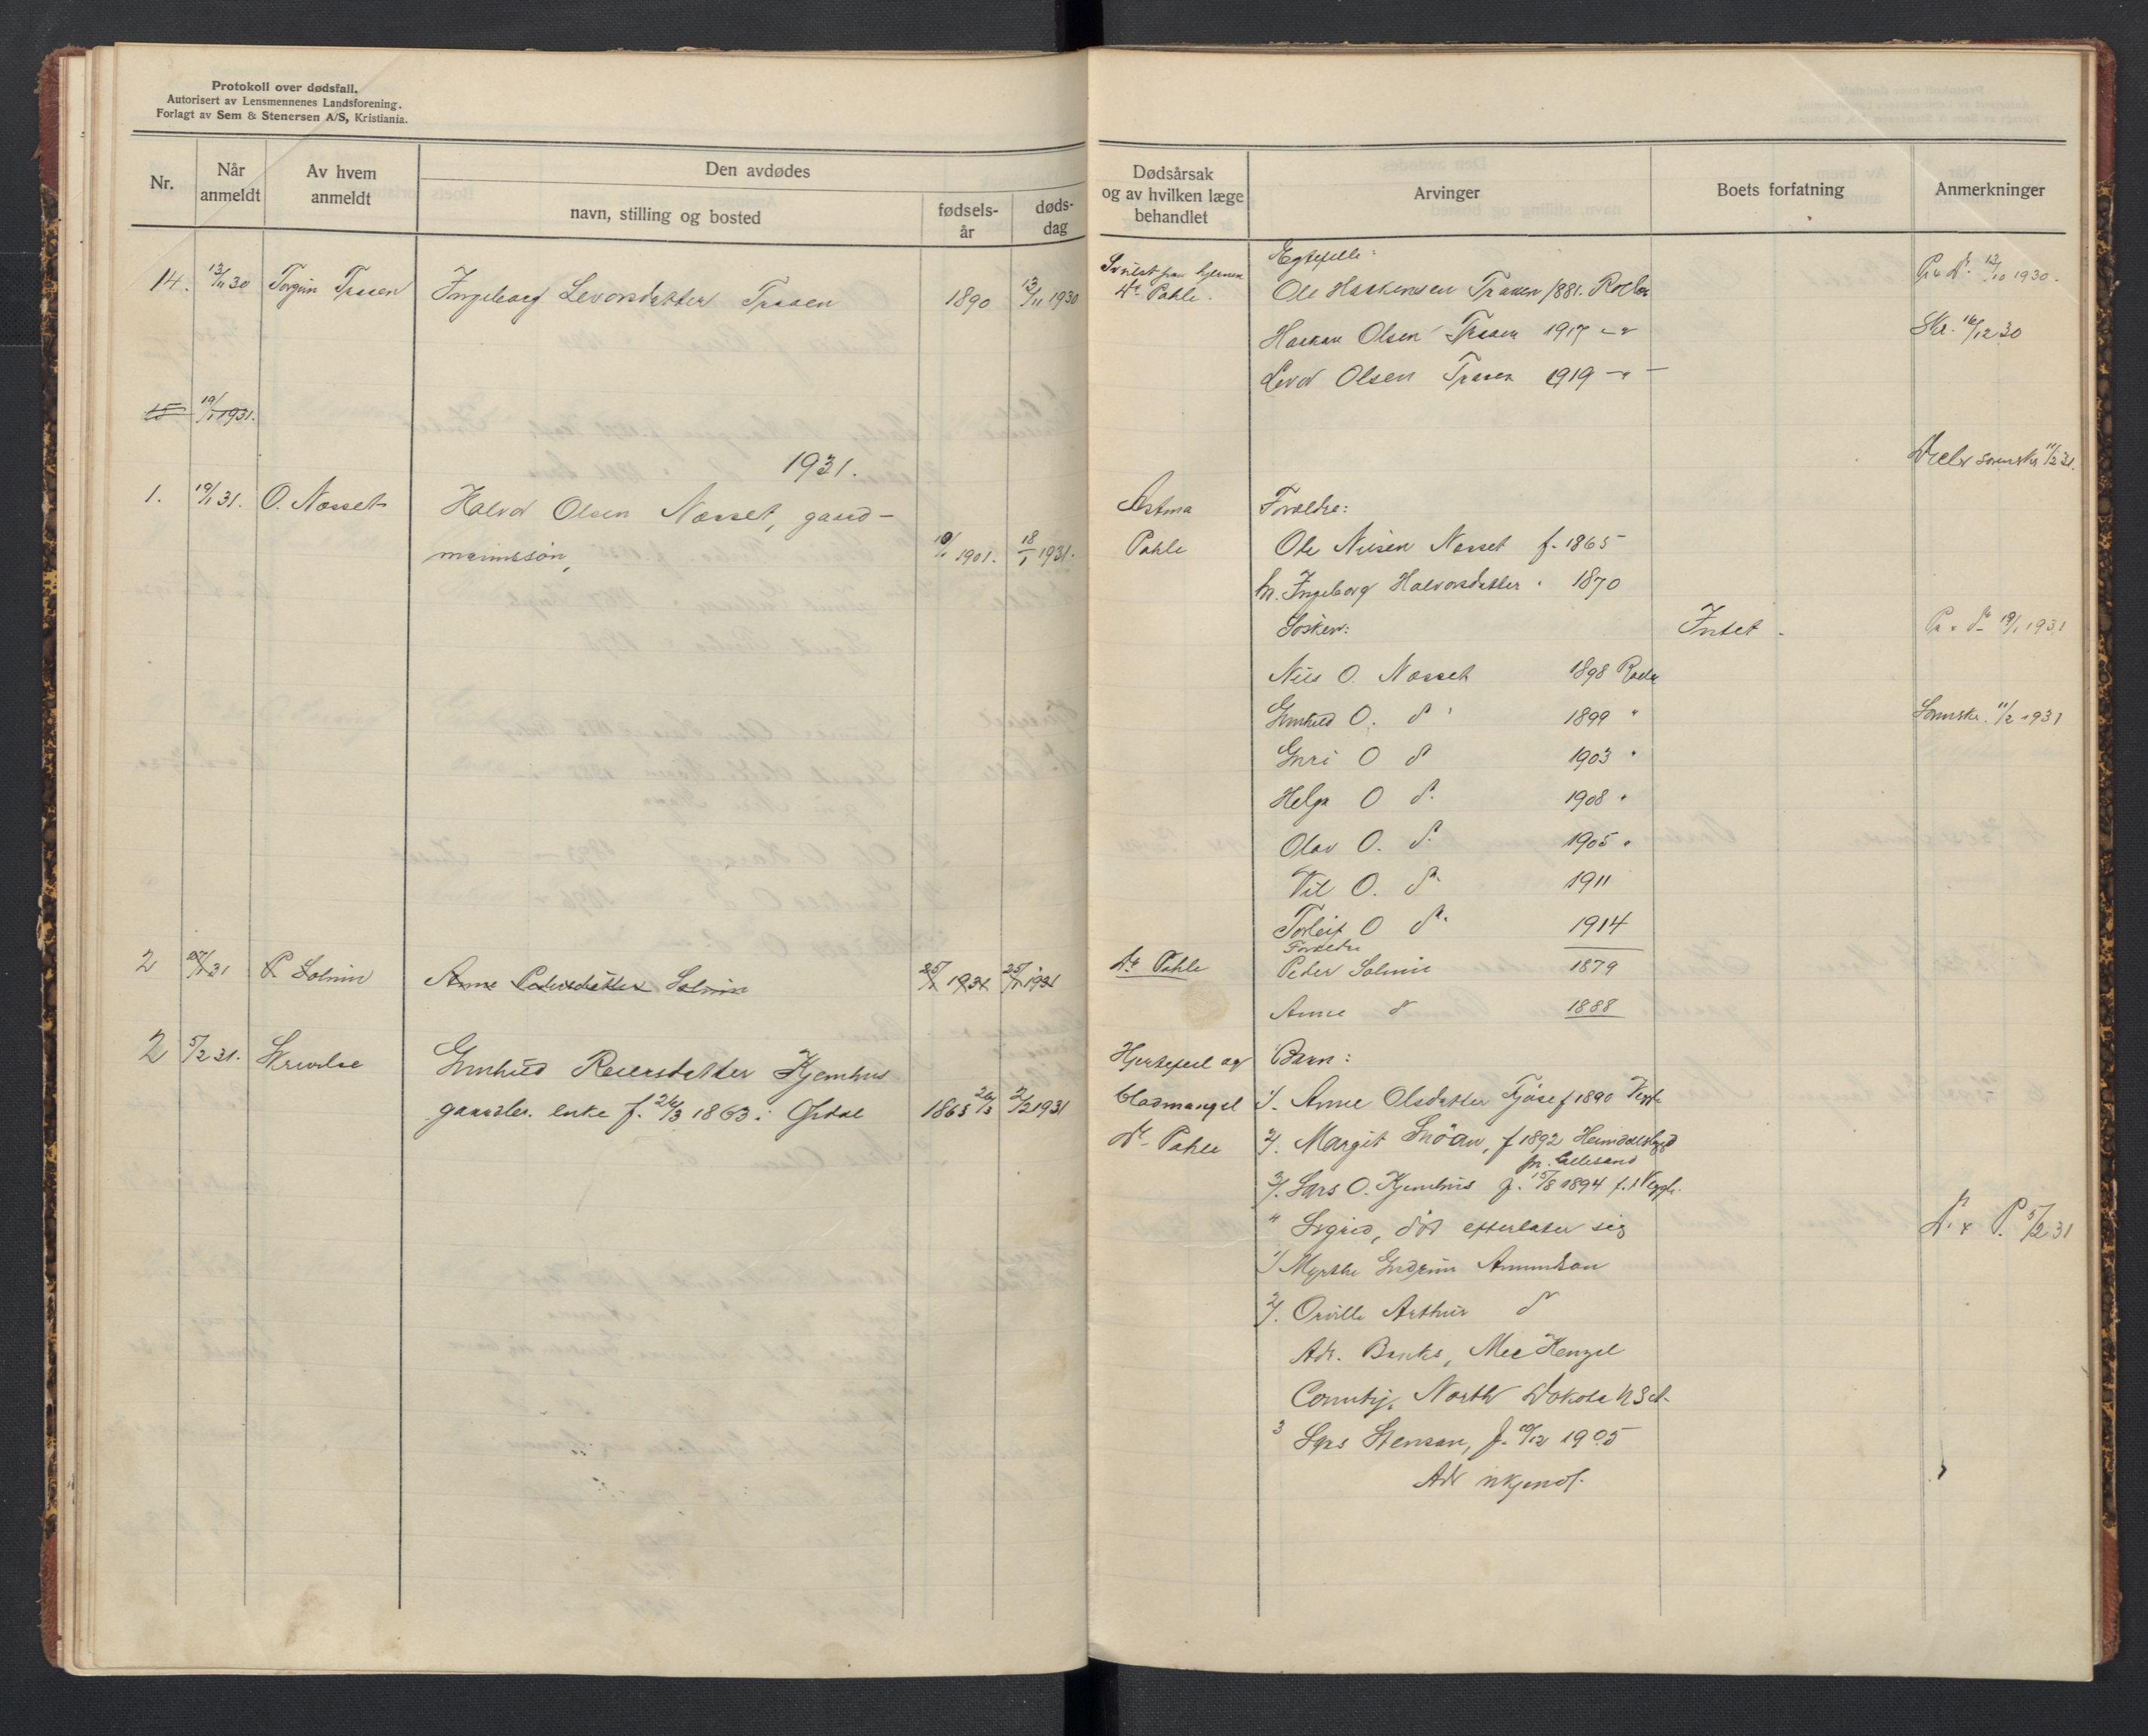 Protokoll over dødsfall.
Autorisert av Lensmennenes Landsforening.
Forlagt av Sem & Stenersen A/S, Kristiania.
Nr.
Når
anmeldt
Av hvem
anmeldt
Den avdødes
navn, stilling og bosted
fødsels-
år
døds-
dag
Dødsårsak
og av hvilken læge
behandlet
Arvinger
Boets forfatning
Anmerkninger
14. 13/11 30 Torgrim Traaen Ingeborg Levorsdatter Traaen 1890 13/11 1930
Dr Pahle.
Egtefelle:
Ole Haakensen Traaen 1881. Rollag
Haakon Olsen Traaen 1917 - " -
Levor Olsen Traaen 1919 - " -
1930.
Skr. 16/12 30
15 19/1 1931.
1931.
11/2 31.
1. 19/1 31. O. Næset Halvor Olsen Næset, gaard-
mannssøn, 10/1 1901. 18/1 1931.
Astma
Pahle
Foreldre:
Ole Nilsen Næset f. 1865
h. Ingeborg Halvorsdatter " 1870
Søsken:
Nils O. Næset 1898 Rollag
Gunhild O. do 1899 "
Guri O do 1903 "
Helga O do 1908 "
Olav O. do 1905 "
O. do 1911
Torleif O do 1914
Intet -
19/1 1931
11/2 1931
2 27/1 31 P Solmin Anne Pedersdatter Solmin 25/1 1931 25/1 1931
Dr Pahle
Foreldre
Peder Solmin 1879
Anne do 1888
2 5/2 31. Gunhild Reiersdatter Kjemhus
gaardbr. enke f. 26/3 1863 i Opdal 1863 26/3 2/2 1931
Hjertefeil og
blodmangel
Dr. Pahle
Barn:
1/. Anne Olsdatter f 1890
2/. Margit f 1892
pr. Lillesand
3/. Lars O. Kjemhus f. 15/8 1894
" Sigrid, død efterlater sig
1/ Myrthe Gudrun Amundson
2/. Orville Arthur do
Adr. Banks, Mec Kenzel
County, North Dakota
3 Lars Stenson, f. 1905
Adr ukjendt.
5/2 31